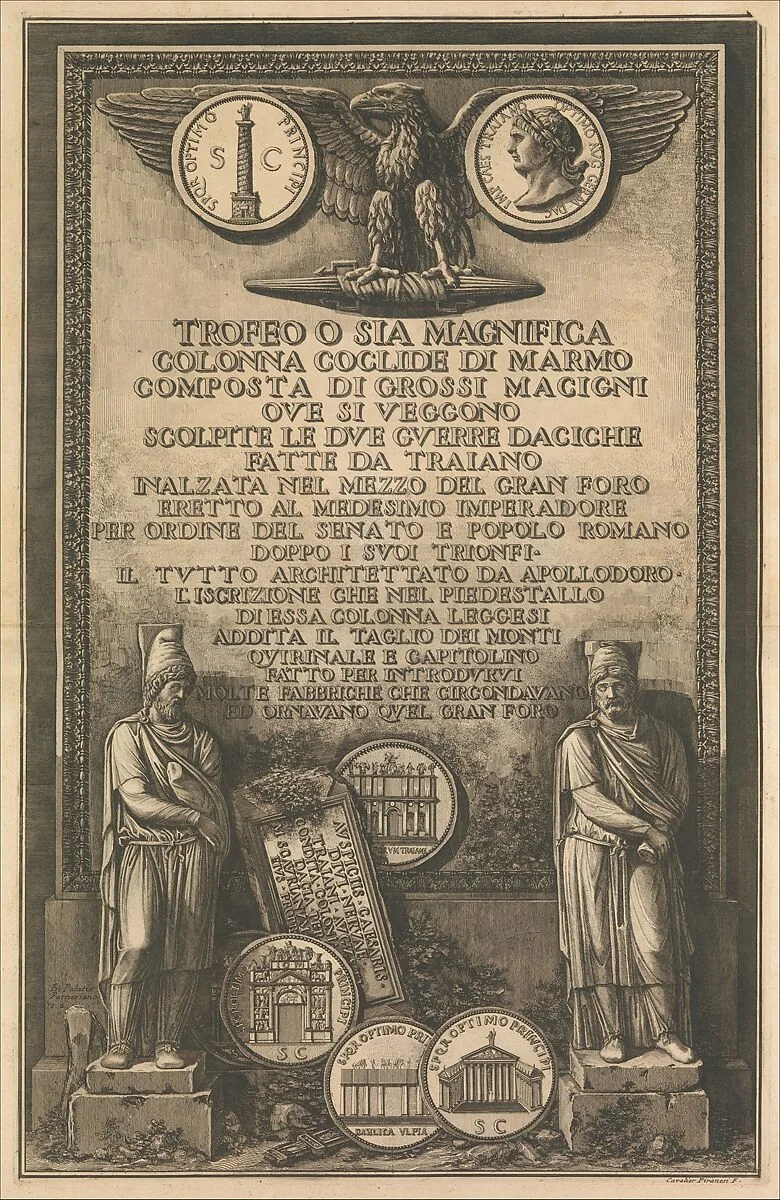 SPQR OPTIMO PRINCIPI
S C
IMP CAES TRAIANO OPTIMO AVG GERM DAC
TROFEO O SIA MAGNIFICA
COLONNA COCLIDE DI MARMO
COMPOSTA DI GROSSI MACIGNI
OVE SI VEGGONO
SCOLPITE LE DVE GVERRE DACICHE
FATTE DA TRAIANO
INALZATA NEL MEZZO DEL GRAN FORO
ERETTO AL MEDESIMO IMPERADORE
PER ORDINE DEL SENATO E POPOLO ROMANO
DOPPO I SVOI TRIONFI·
IL TVTTO ARCHITETTATO DA APOLLODORO·
L'ISCRIZIONE CHE NEL PIEDESTALLO
DI ESSA COLONNA LEGGESI
ADDITA IL TAGLIO DEI MONTI
QVIRINALE E CAPITOLINO
FATTO PER INTRODVRVI
MOLTE FABBRICHE CHE CIRCONDAVANO
ED ORNAVANO QVEL GRAN FORO
TRAIANI
AVSPICIIS · CAESARIS ·
DIVI · NERVAE ·
In Palazzo
Farnesiano
PRINCIPI
S C
SPQR OPTIMO PRI
BASILICA VLPIA
SPQR OPTIMO PRINCIPI
S C
Cavalier Piranesi F.